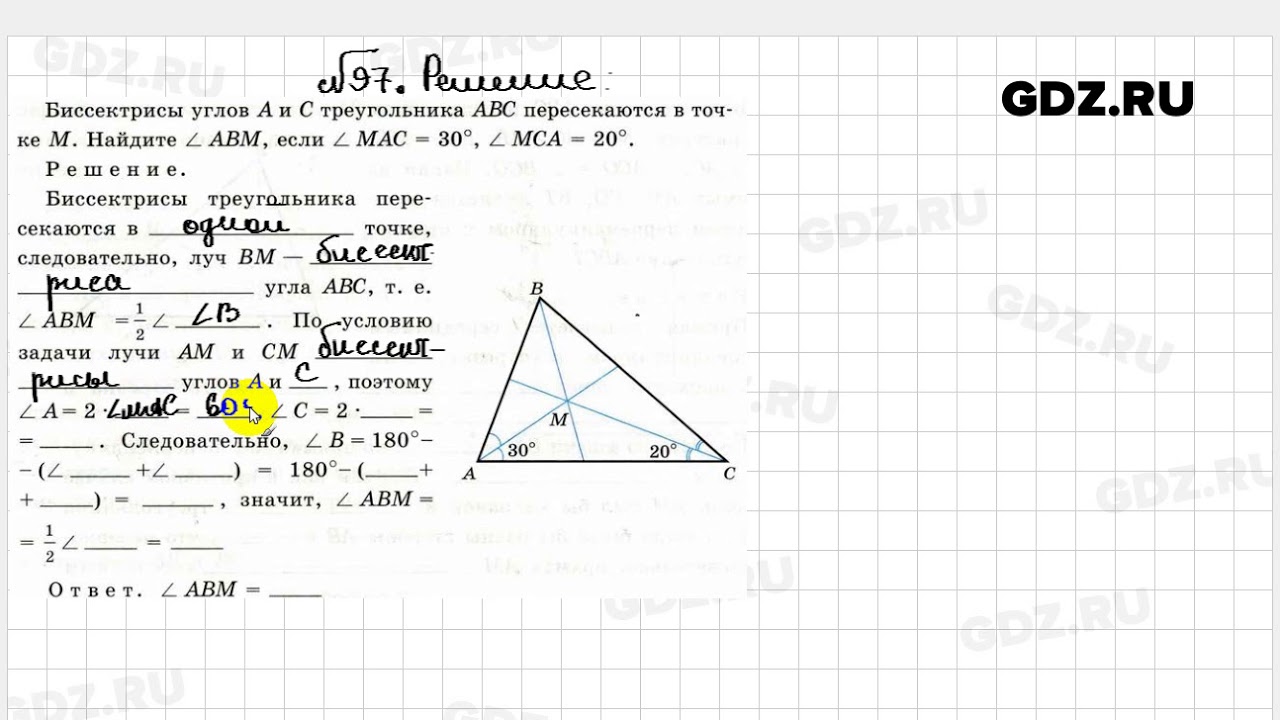 №97. Решение:
GDZ.RU
Биссектрисы углов A и C треугольника ABC пересекаются в точ-
ке M. Найдите ∠ ABM, если ∠ MAC = 30°, ∠ MCA = 20°.
Решение.
Биссектрисы треугольника пере-
секаются в одной точке,
следовательно, луч BM — биссект-
риса угла ABC, т. е.
∠ ABM = 1/2 ∠ ∠B . По условию
задачи лучи AM и CM биссект-
рисы углов A и C , поэтому
∠ A = 2 · ∠MAC = 60°, ∠ C = 2 · ____ =
= ____ . Следовательно, ∠ B = 180° –
– (∠ ____ + ∠ ____ ) = 180° – ( ____ +
+ ____ ) = ____ , значит, ∠ ABM =
= 1/2 ∠ ____ = ____
Ответ. ∠ ABM = ____
B
M
30°
20°
A
C
GDZ.RU
GDZ.RU
GDZ.RU
GDZ.RU
GDZ.RU
GDZ.RU
GDZ.RU
GDZ.RU
GDZ.RU
GDZ.RU